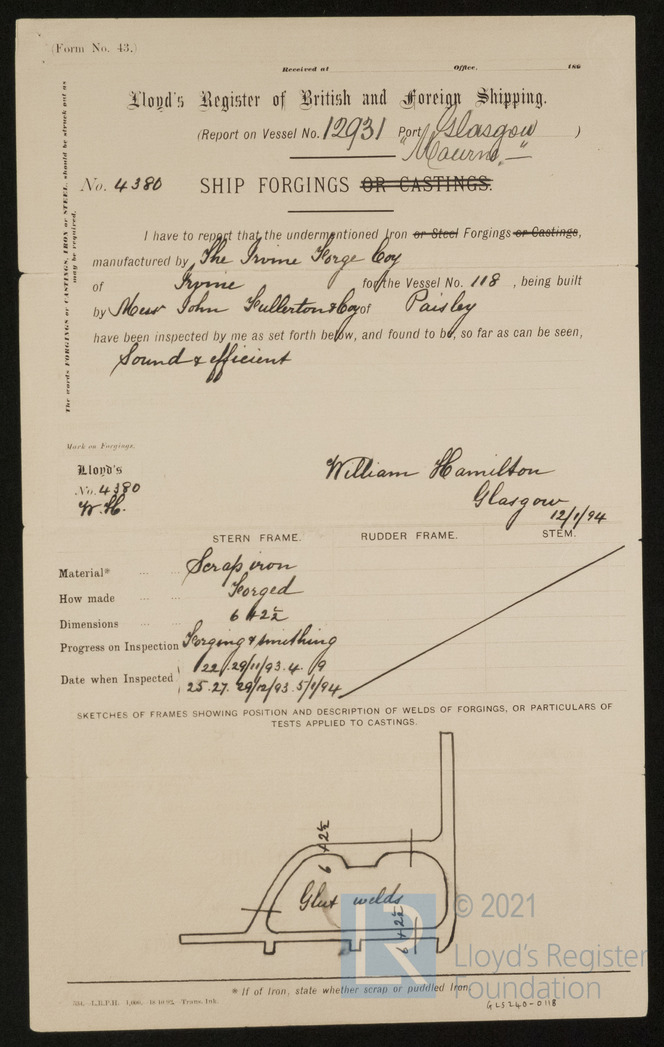 (Form No. 43.)
Received at Office. 186
Lloyd's Register of British and Foreign Shipping.
(Report on Vessel No. 12931 Port Glasgow )
"Mourne"
No. 4380 SHIP FORGINGS OR CASTINGS.
The words FORGINGS or CASTINGS, IRON or STEEL, should be struck out as
may be required.
I have to report that the undermentioned Iron or Steel Forgings or Castings,
manufactured by The Irvine Forge Coy
of Irvine for the Vessel No. 118 , being built
by Messrs John Fullerton & Coy of Paisley
have been inspected by me as set forth below, and found to be, so far as can be seen,
Sound & efficient
Mark on Forgings.
Lloyd's
No. 4380
W.H.
William Hamilton
Glasgow
12/1/94
STERN FRAME. RUDDER FRAME. STEM.
Material* Scrap iron
How made Forged
Dimensions 6 + 2½
Progress on Inspection Forging & smithing
Date when Inspected 22/29/11/93. 4. 9
25. 27. 29/12/93. 5/1/94
SKETCHES OF FRAMES SHOWING POSITION AND DESCRIPTION OF WELDS OF FORGINGS, OR PARTICULARS OF
TESTS APPLIED TO CASTINGS.
6 + 2½
Glut welds
6 + 2½
© 2021
LR
Lloyd's Register
Foundation
* If of Iron, state whether scrap or puddled Iron.
L.B.P.H. 1,000. Trans. Ink.
GLS240-0118